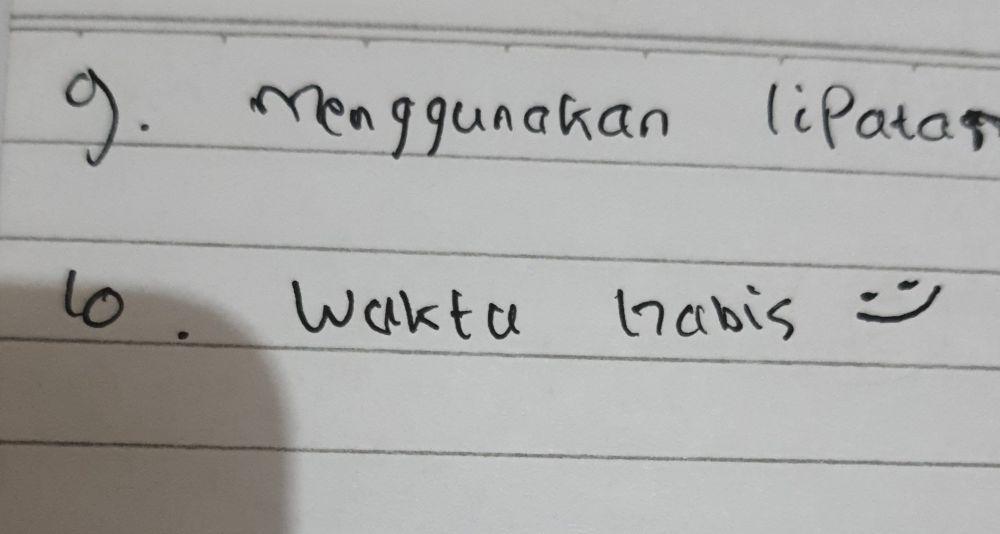 9. Menggunakan lipatan
10. Waktu habis :)